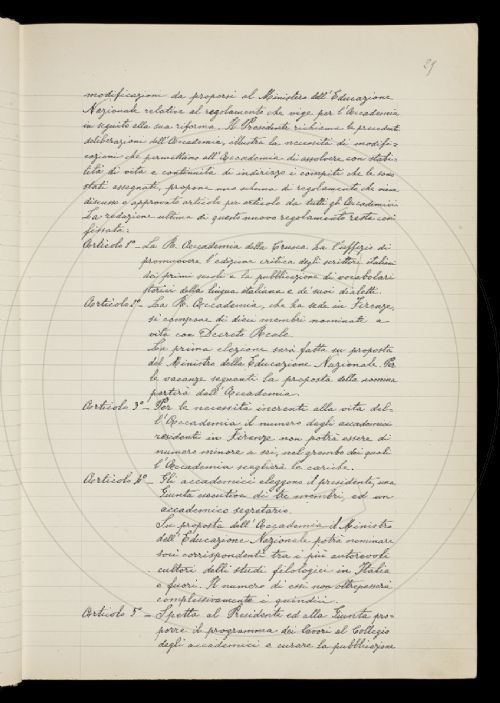 29
modificazioni da proporsi al Ministero dell'Educazione
Nazionale relative al regolamento che vige per l'Accademia
in seguito alla sua riforma. Il Presidente richiama le precedenti
deliberazioni dell'Accademia, illustra la necessità di modifi-
cazioni che permettano all'Accademia di assolvere, con stabi-
lità di vita e continuità di indirizzo i compiti che le sono
stati assegnati, propone uno schema di regolamento che viene
discusso e approvato articolo per articolo da tutti gli Accademici.
La redazione ultima di questo nuovo regolamento resta così
fissata:
Articolo 1° - La R. Accademia della Crusca ha l'uffizio di
promuovere l'edizione critica degli scrittori italiani
dei primi secoli e la pubblicazione di vocabolari
storici della lingua italiana e de' suoi dialetti.
Articolo 2° - La R. Accademia, che ha sede in Firenze,
si compone di dieci membri nominati a
vita con Decreto Reale.
La prima elezione sarà fatta su proposta
del Ministro della Educazione Nazionale. Per
le vacanze seguenti la proposta della nomina
partirà dall'Accademia.
Articolo 3° - Per le necessità inerenti alla vita del-
l'Accademia il numero degli accademici
residenti in Firenze non potrà essere di
numero minore a sei, nel grembo dei quali
l'Accademia sceglierà le cariche.
Articolo 4° - Gli accademici eleggono il presidente, una
Giunta esecutiva di tre membri, ed un
accademico segretario.
Su proposta dell'Accademia il Ministro
dell'Educazione Nazionale potrà nominare
soci corrispondenti tra i più autorevoli
cultori delli studi filologici in Italia
e fuori. Il numero di essi non oltrepasserà
complessivamente i quindici.
Articolo 5° - Spetta al Presidente ed alla Giunta pro-
porre il programma dei lavori al Collegio
degli accademici e curare la pubblicazione